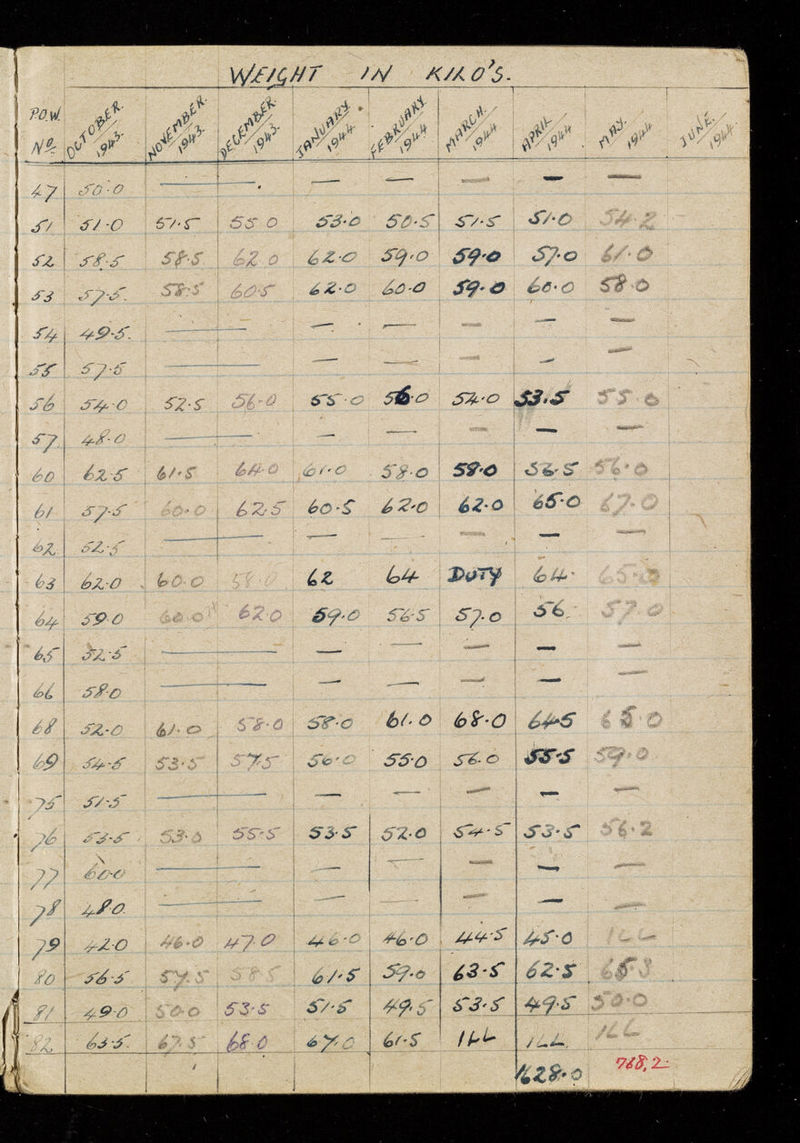 WEIGHT IN KILO'S.
P.O.W. No. OCTOBER. 1943. NOVEMBER. 1943. DECEMBER. 1943. JANUARY. 1944 FEBRUARY. 1944 MARCH. 1944 APRIL 1944 MAY. 1944 JUNE. 1944.
47 50.0 — — — — — —
51 51.0 51.5 55.0 53.0 50.5 51.5 51.0 54.2
52 58.5 58.5 62.0 62.0 59.0 59.0 57.0 61.0
53 57.5. 58.5 60.5 62.0 60.0 59.0 60.0 58.0
54 49.5. — — — — — —
55 57.5 — — — — — —
56 54.0 52.5 56.0 55.0 56.0 54.0 53.5 55.0
57. 48.0 — — — — — —
60 62.5 61.5 64.0 61.0 58.0 58.0 56.5 56.0
61 57.5 60.0 62.5 60.5 62.0 62.0 65.0 67.0
62 52.5 — — — — — —
63 62.0 60.0 58.0 62 64 DUTY 64. 65.0
64 59.0 60.0 62.0 59.0 56.5 57.0 56. 57.0
65 52.5 — — — — — —
66 58.0 — — — — — —
68 52.0 61.0 58.0 58.0 61.0 68.0 64.5 65.0
69 54.5 53.5 57.5 56.0 55.0 56.0 55.5 59.0
75 51.5 — — — — — —
76 53.5 53.0 55.5 53.5 52.0 54.5 53.5 56.2
77 60.0 — — — — — —
78 48.0. — — — — — —
79 42.0 46.0 47.0 46.0 46.0 44.5 45.0 ILL
80 56.5 57.5 58.5 61.5 59.0 63.5 62.5 65.3
81 49.0 50.0 53.5 51.5 49.5 53.5 49.5 50.0
82 63.5. 67.5 68.0 67.0 61.5 ILL ILL. ILL
1628.0 768.2